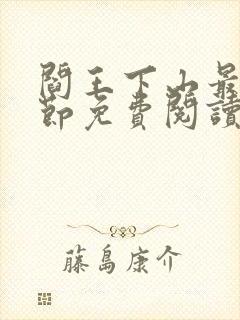 閻王下山最
節免費閱讀
藤島康介